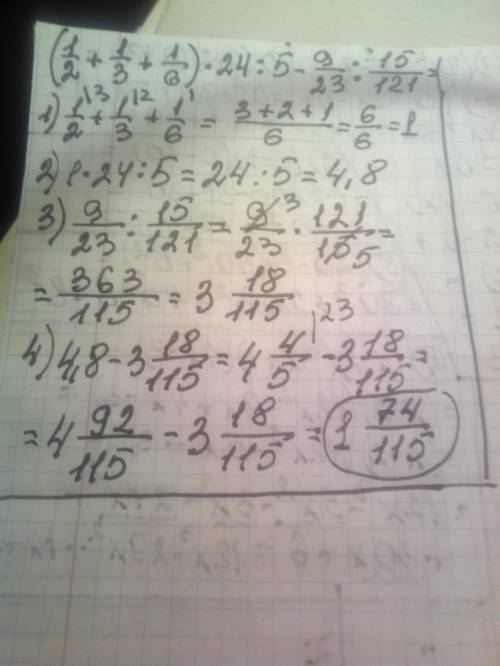 (1/2 + 1/3 + 1/6) · 24 : 5 - 9/23 : 15/121 =
1) 1/2 |3 + 1/3 |2 + 1/6 |1 = (3+2+1)/6 = 6/6 = 1
2) 1 · 24 : 5 = 24 : 5 = 4,8
3) 9/23 : 15/121 = 9 3/23 · 121/15 5 =
= 363/115 = 3 18/115
4) 4,8 - 3 18/115 = 4 4/5 |23 - 3 18/115 =
= 4 92/115 - 3 18/115 = 1 74/115